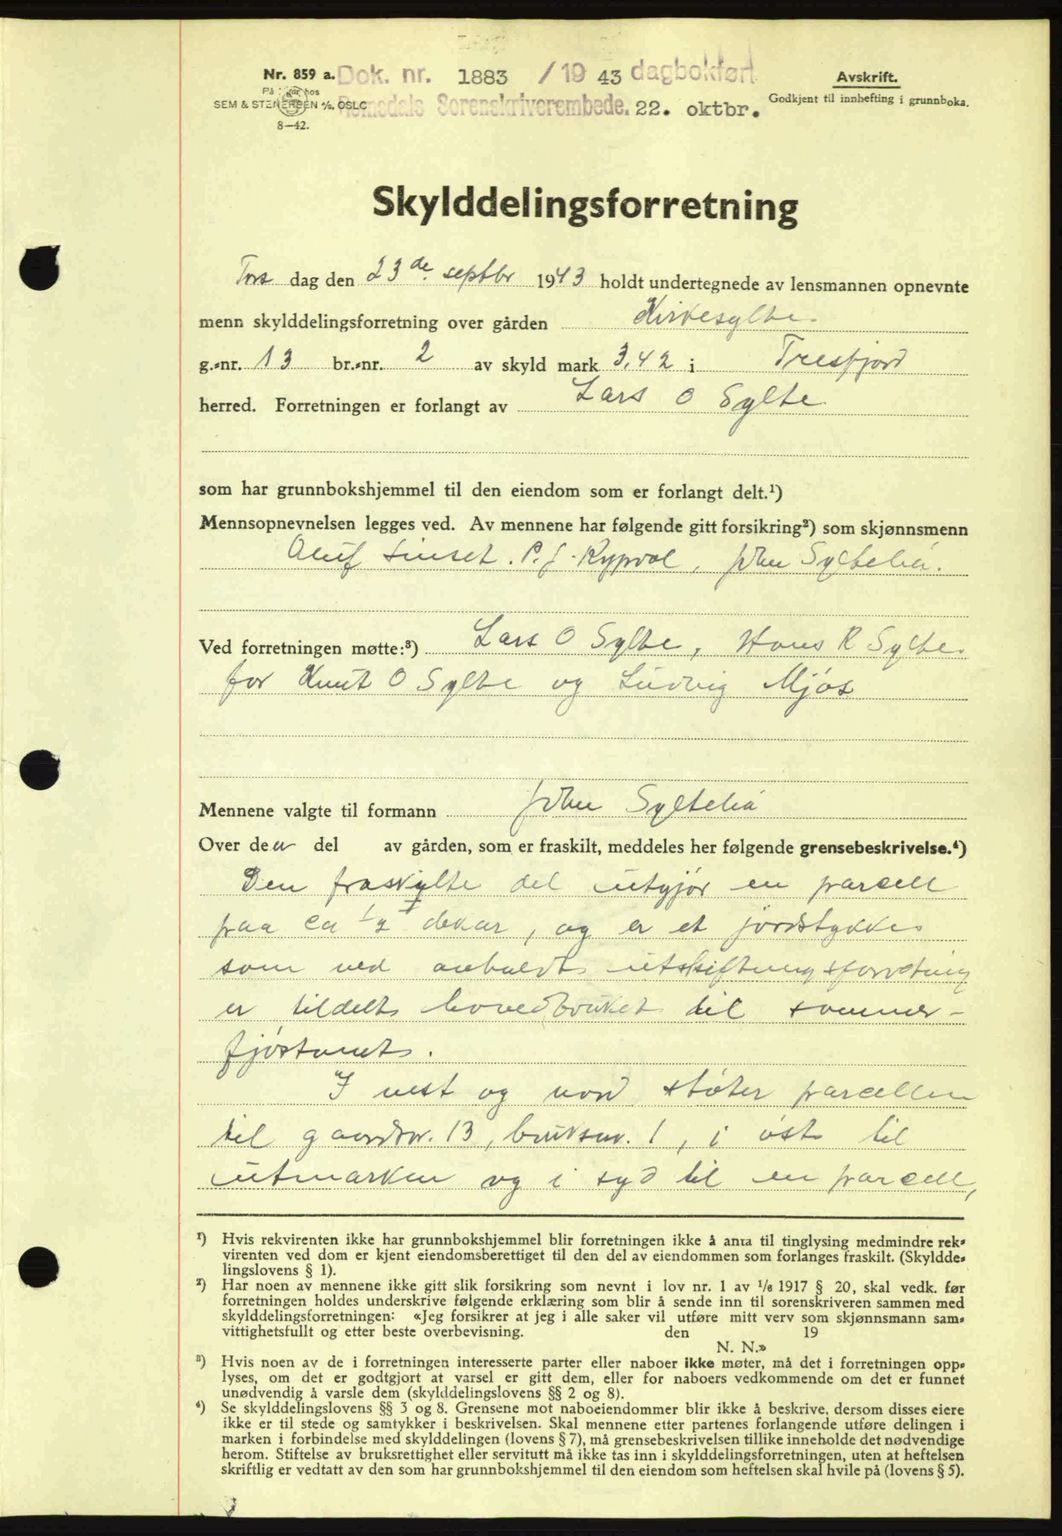 Nr. 859 a. Dok. nr. 1883 /19 43 dagbokført Avskrift.
På lager hos
SEM & STENERSEN A/S. OSLO Romsdals Sorenskriverembede. 22. oktbr. Godkjent til innhefting i grunnboka.
8—42.
Skylddelingsforretning
Tors dag den 23de septbr 1943 holdt undertegnede av lensmannen opnevnte
menn skylddelingsforretning over gården Kirkesylte.
g.-nr. 13 br.-nr. 2 av skyld mark 3,42 i Tresfjord
herred. Forretningen er forlangt av Lars O Sylte
som har grunnbokshjemmel til den eiendom som er forlangt delt.¹)
Mennsopnevnelsen legges ved. Av mennene har følgende gitt forsikring²) som skjønnsmenn
Oluf P. J. Rypdal, John Syltelia.
Ved forretningen møtte:³) Lars O Sylte, Hans R Sylte.
for Knut O Sylte og Ludvig Mjøs
Mennene valgte til formann John Sylteliá
Over den del av gården, som er fraskilt, meddeles her følgende grensebeskrivelse.⁴)
Den fraskylte del utgjør en parcell
paa ca ½ dekar, og er et jordstykke
som ved anholdt utskiftningsforretning
er tildelt hovedbruket til sommer-
fjøstomt.
I vest og nord støter parcellen
til gaardnr. 13, bruksnr. 1, i øst til
utmarken og i syd til en parcell,
¹) Hvis rekvirenten ikke har grunnbokshjemmel blir forretningen ikke å anta til tinglysing medmindre rek-
virenten ved dom er kjent eiendomsberettiget til den del av eiendommen som forlanges fraskilt. (Skyldde-
lingslovens § 1).
²) Har noen av mennene ikke gitt slik forsikring som nevnt i lov nr. 1 av 1/6 1917 § 20, skal vedk. før
forretningen holdes underskrive følgende erklæring som blir å sende inn til sorenskriveren sammen med
skylddelingsforretningen: «Jeg forsikrer at jeg i alle saker vil utføre mitt verv som skjønnsmann sam-
vittighetsfullt og etter beste overbevisning. den 19
N. N.»
³) Hvis noen av de i forretningen interesserte parter eller naboer ikke møter, må det i forretningen opp-
lyses, om det er godtgjort at varsel er gitt dem, eller for naboers vedkommende om det er funnet
unødvendig å varsle dem (skylddelingslovens §§ 2 og 8).
⁴) Se skylddelingslovens §§ 3 og 8. Grensene mot naboeiendommer blir ikke å beskrive, dersom disses eiere
ikke er til stede og samtykker i beskrivelsen. Skal mennene etter partenes forlangende utføre delingen i
marken i forbindelse med skylddelingen (lovens § 7), må grensebeskrivelsen tillike inneholde det nødvendige
herom. Stiftelse av bruksrettighet eller servitutt må ikke tas inn i skylddelingsforretningen, uten at heftelsen
skriftlig er vedtatt av den som har grunnbokshjemmel til den eiendom som heftelsen skal hvile på (lovens § 5).